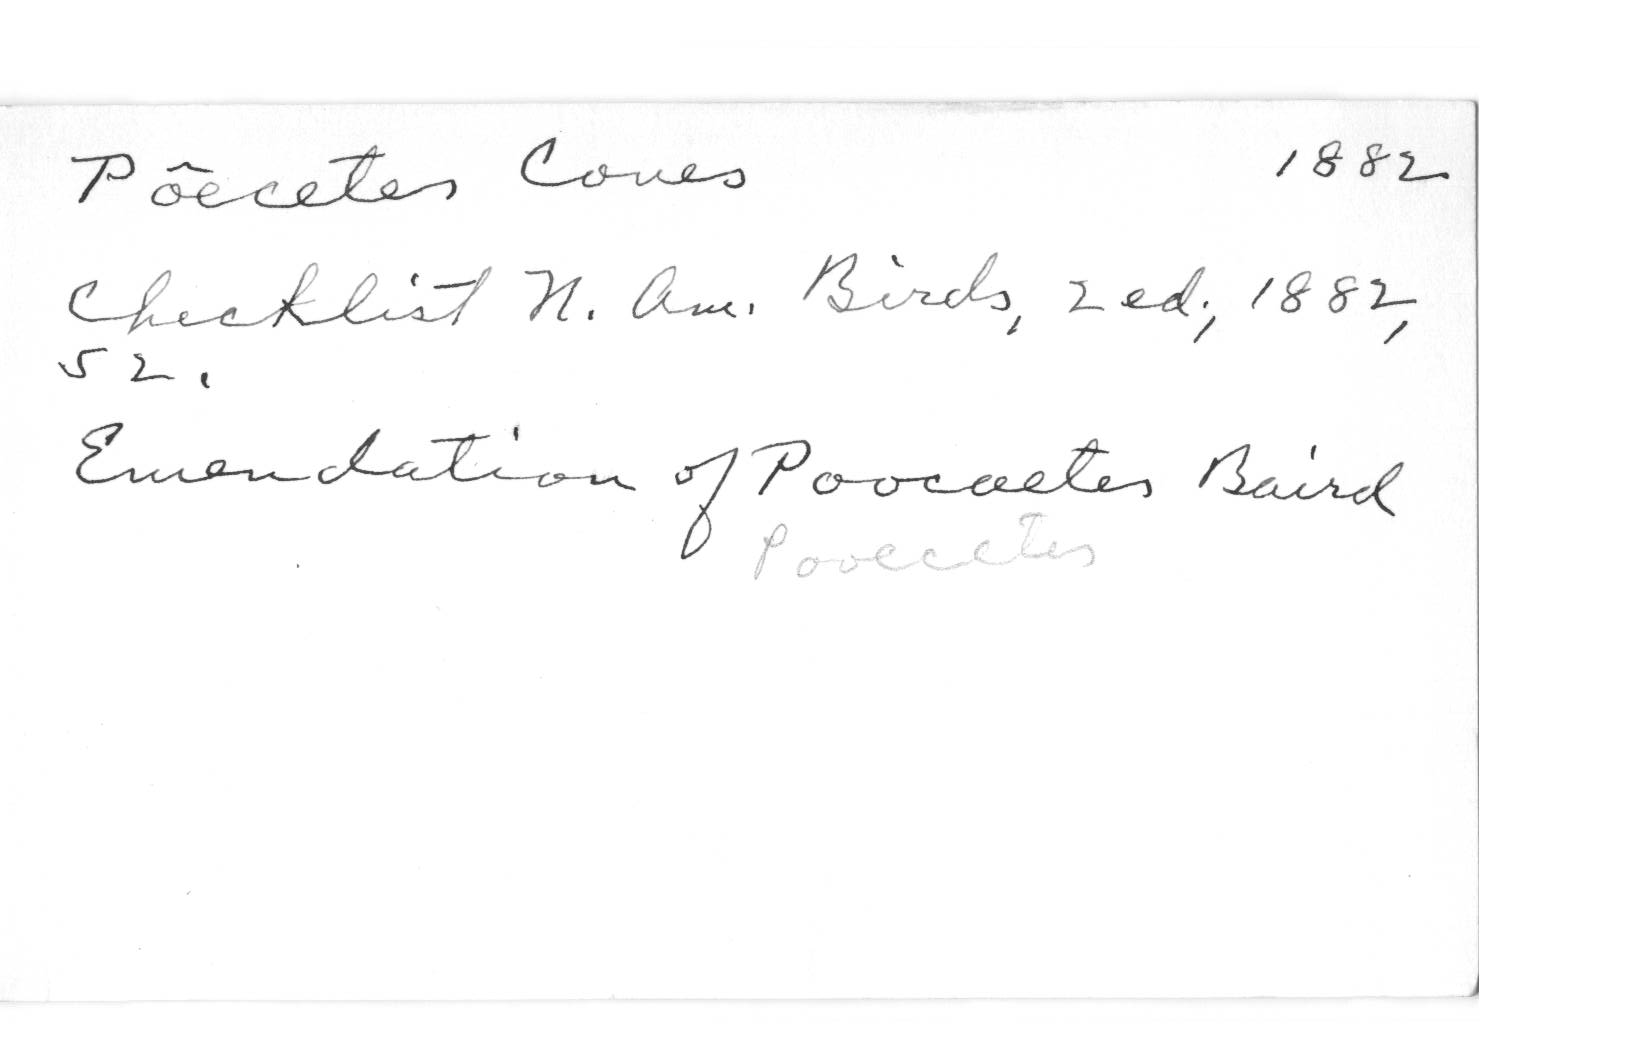 Pôecetes Coues 1882
Checklist N. Am. Birds, 2 ed., 1882,
52.
Emendation of Poocaetes Baird
Pooecetes